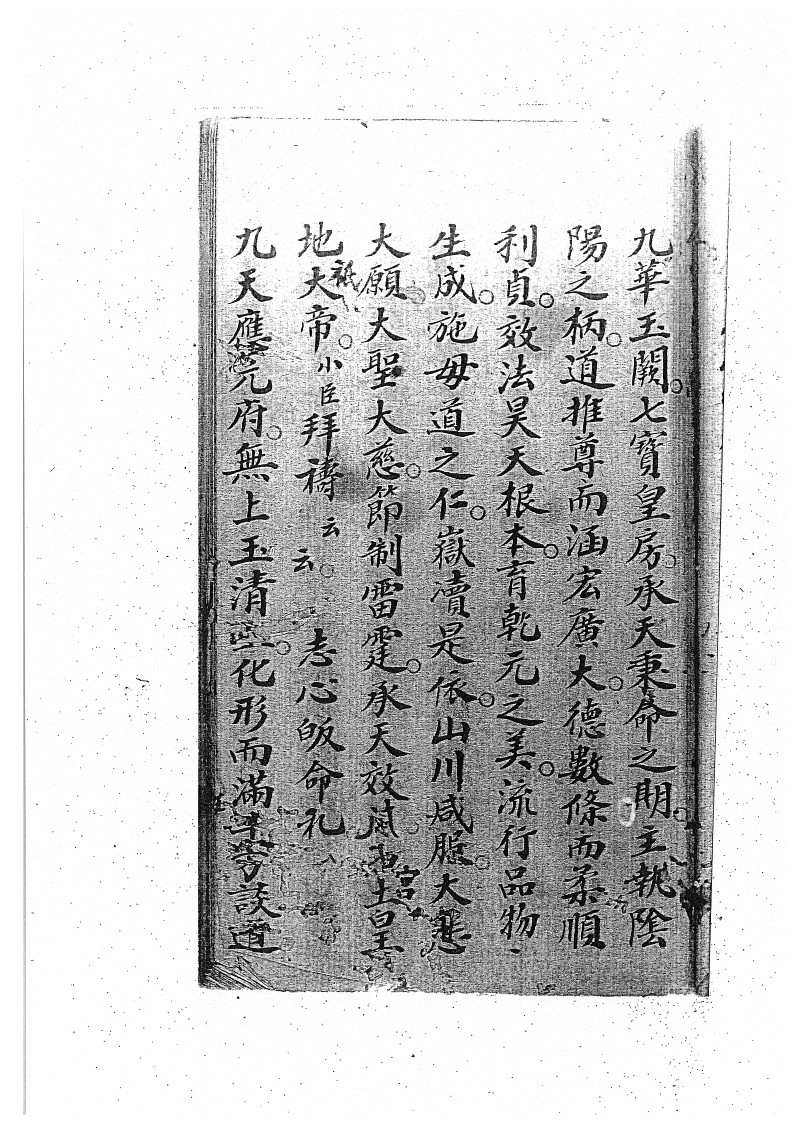 九華玉闕。七寶皇房。承天秉命之期。主執陰
陽之柄。道推尊而涵宏廣大。德數條而柔順
利貞。效法昊天根本。育乾元之美。流行品物、
生成。施母道之仁。嶽瀆是依。山川咸服。大悲
大願。大聖大慈。節制雷霆。承天效法。土皇
地祇大帝。小臣拜禱云云。志心皈命礼
九天應元府。無上玉清王。化形而滿十方。談道